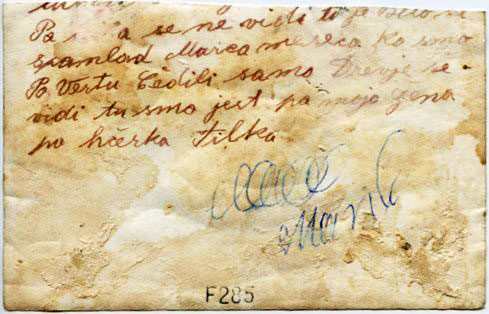 Pa se ne vidi to je
spamlad Marca meseca Ko smo
Po Vertu Cedili samo Drevje se
vidi tu smo jest pa moja žena
pa hčerka Tilka.
F285